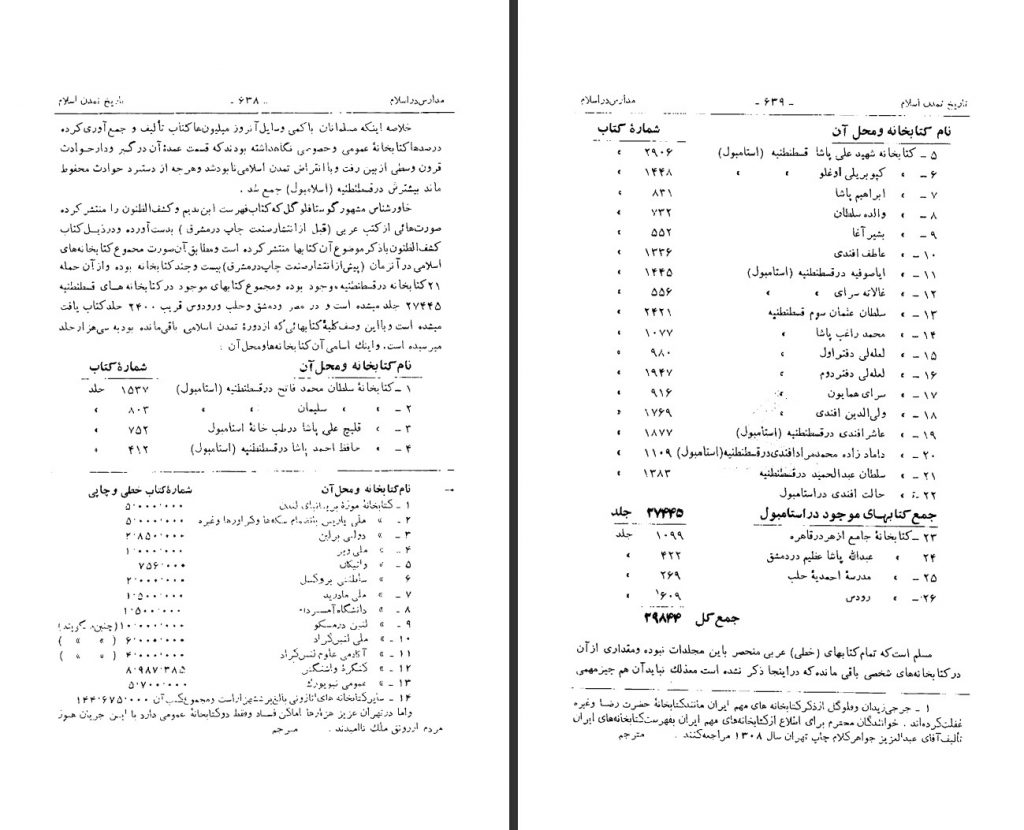 تاریخ تمدن اسلام
- ۶۳۸ -
مدارس در اسلام
خلاصه اینکه مسلمانان با کمی وسایل آنروز میلیون‌ها کتاب تألیف و جمع آوری کرده
درصدها کتابخانهٔ عمومی و خصوصی نگاهداشته بودند که قسمت عمدهٔ آن در گیر و دار حوادث
قرون وسطی از بین رفت و با انقراض تمدن اسلامی نابود شد و هر چه از دستبرد حوادث محفوظ
ماند بیشترش در قسطنطنیه (اسلامبول) جمع شد .
خاورشناس مشهور گوستا فلوگل که کتاب فهرست ابن ندیم و کشف الظنون را منتشر کرده
صورت‌هائی از کتب عربی (قبل از انتشار صنعت چاپ در مشرق) بدست آورده و در ذیل کتاب
کشف الظنون با ذکر موضوع آن کتابها منتشر کرده است و مطابق آن صورت مجموع کتابخانه‌های
اسلامی در آنزمان (پیش از انتشار صنعت چاپ در مشرق) بیست و چند کتابخانه بوده و از آن جمله
۲۱ کتابخانه در قسطنطنیه موجود بوده و مجموع کتابهای موجود در کتابخانه هــای قسطنطنیه
۲۷۴۴۵ جلد میشده است و در مصر و دمشق و حلب و رودوس قریب ۲۴۰۰ جلد کتاب یافت
میشده است و با این وصف کلیهٔ کتابهائی که از دورهٔ تمدن اسلامی باقی مانده بود به سی هزار جلد
میرسیده است. و اینك اسامی آن کتابخانه‌ها و محل آن :
نام کتابخانه و محل آن شمارهٔ کتاب
۱ ــ کتابخانهٔ سلطان محمد فاتح در قسطنطنیه (استامبول) ۱۵۳۷ جلد
۲ ــ » » سلیمان » » ۸۰۳ »
۳ ــ » قلیچ علی پاشا در طب خانهٔ استامبول ۷۵۲ »
۴ ــ » حافظ احمد پاشا در قسطنطنیه (استامبول) ۴۱۲ »
نام کتابخانه و محل آن شمارهٔ کتاب خطی و چاپی
۱ ــ کتابخانهٔ موزهٔ بریتانیای لندن ۵۰۰۰۰۰۰
۲ ــ » ملی پاریس باستثنای سکه‌ها و گراورها وغیره ۵۰۰۰۰۰۰
۳ ــ » دولتی برلین ۲۸۵۰۰۰۰
۴ ــ » ملی وین ۱۰۰۰۰۰۰
۵ ــ » واتیکان ۷۵۶۰۰۰
۶ » سلطنتی بروکسل ۲۰۰۰۰۰۰
۷ ــ » ملی مادرید ۱۵۰۰۰۰۰
۸ ــ » دانشگاه آمستردام ۱۵۰۰۰۰۰
۹ ــ » لنین در مسکو ۱۰۰۰۰۰۰۰ (چنین میگویند)
۱۰ ــ » ملی لنین گراد ۶۰۰۰۰۰۰ ( » » )
۱۱ ــ » آکادمی علوم لنین گراد ۴۰۰۰۰۰۰ ( » » )
۱۲ ــ » کنگرهٔ واشنگتن ۸۹۸۷۳۸۵
۱۳ ــ » عمومی نیویورك ۵۷۰۰۰۰۰
۱۴ ــ سایر کتابخانه های بالغ بر شش هزار است و مجموع کتب آن ۱۴۴۶۷۵۰۰۰
واما در تهران عزیز هزارها اماکن فساد وفقط دو کتابخانهٔ عمومی دارد با این جریان هنوز
مردم از رونق ملك ناامیدند . مترجم
تاریخ تمدن اسلام
- ۶۳۹ -
مدارس در اسلام
نام کتابخانه و محل آن شمارهٔ کتاب
۵ ــ کتابخانه شهید علی پاشا قسطنطنیه (استامبول) ۲۹۰۶ »
۶ ــ » کپوبریلی اوغلو » » ۱۴۴۸ »
۷ ــ » ابراهیم پاشا ۸۳۱ »
۸ ــ » والده سلطان ۷۳۲ »
۹ ــ » بشیر آغا ۵۵۲ »
۱۰ ــ » عاطف افندی ۱۳۳۶ »
۱۱ ــ » ایاصوفیه در قسطنطنیه (استامبول) ۱۴۴۵ »
۱۲ ــ » غالاته سرای » » ۵۵۶ »
۱۳ ــ » سلطان عثمان سوم قسطنطنیه ۲۴۲۱ »
۱۴ ــ » محمد راغب پاشا » ۱۰۷۷ »
۱۵ ــ » لعله‌لی دفتر اول » ۹۸۰ »
۱۶ ــ » لعله‌لی دفتر دوم » ۱۹۴۷ »
۱۷ ــ » سرای همایون » ۹۱۶ »
۱۸ ــ » ولی‌الدین افندی » ۱۷۶۹ »
۱۹ ــ » عاشر افندی در قسطنطنیه (استامبول) ۱۸۷۷ »
۲۰ ــ » داماد زاده محمد مراد افندی در قسطنطنیه (استامبول) ۱۱۰۹ »
۲۱ ــ » سلطان عبدالحمید در قسطنطنیه ۱۳۸۳ »
۲۲ ــ » حالت افندی در استامبول
جمع کتابهــای موجود در استامبول ۲۷۴۴۵ جلد
۲۳ ــ کتابخانهٔ جامع ازهر در قاهره ۱۰۹۹ جلد
۲۴ » عبدالله پاشا عظیم در دمشق ۴۲۲ »
۲۵ ــ » مدرسهٔ احمدیهٔ حلب ۲۶۹ »
۲۶ ــ » رودس ۶۰۹ »
جمع کل ۲۹۸۴۴
مسلم است که تمام کتابهای (خطی) عربی منحصر باین مجلدات نبوده و مقداری از آن
در کتابخانه‌های شخصی باقی مانده که در اینجا ذکر نشده است معذلك نباید آن هم چیز مهمی
۱ ــ جرجی زیدان و فلوگل از ذکر کتابخانه های مهم ایران مانند کتابخانهٔ حضرت رضا وغیره
غفلت کرده‌اند . خوانندگان محترم برای اطلاع از کتابخانه‌های مهم ایران بفهرست کتابخانه‌های ایران
تألیف آقای عبدالعزیز جواهر کلام چاپ تهران سال ۱۳۰۸ مراجعه کنند . مترجم